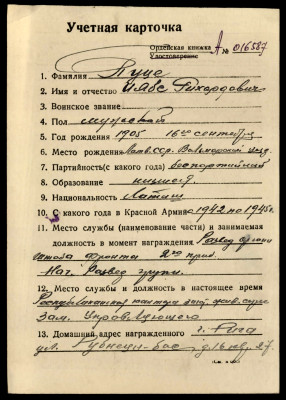 Учетная карточка
Орденская книжка
Удостоверение А № 016587
1. Фамилия Пуце
2. Имя и отчество Рихардович
3. Воинское звание
4. Пол мужской
5. Год рождения 1905 16го сентября
6. Место рождения Латв. ССР. Валмиерский уезд.
7. Партийность (с какого года) беспартийный
8. Образование
9. Национальность Латыш
10. С какого года в Красной Армии с 1942 по 1945г.
11. Место службы (наименование части) и занимаемая
должность в момент награждения Развед
штаба фронта 2го приб.
Нач. Развед группы.
12. Место службы и должность в настоящее время
Республиканская контора
Зам. Управляющего
13. Домашний адрес награжденного г. Рига
ул. д. 16 кв. 27.